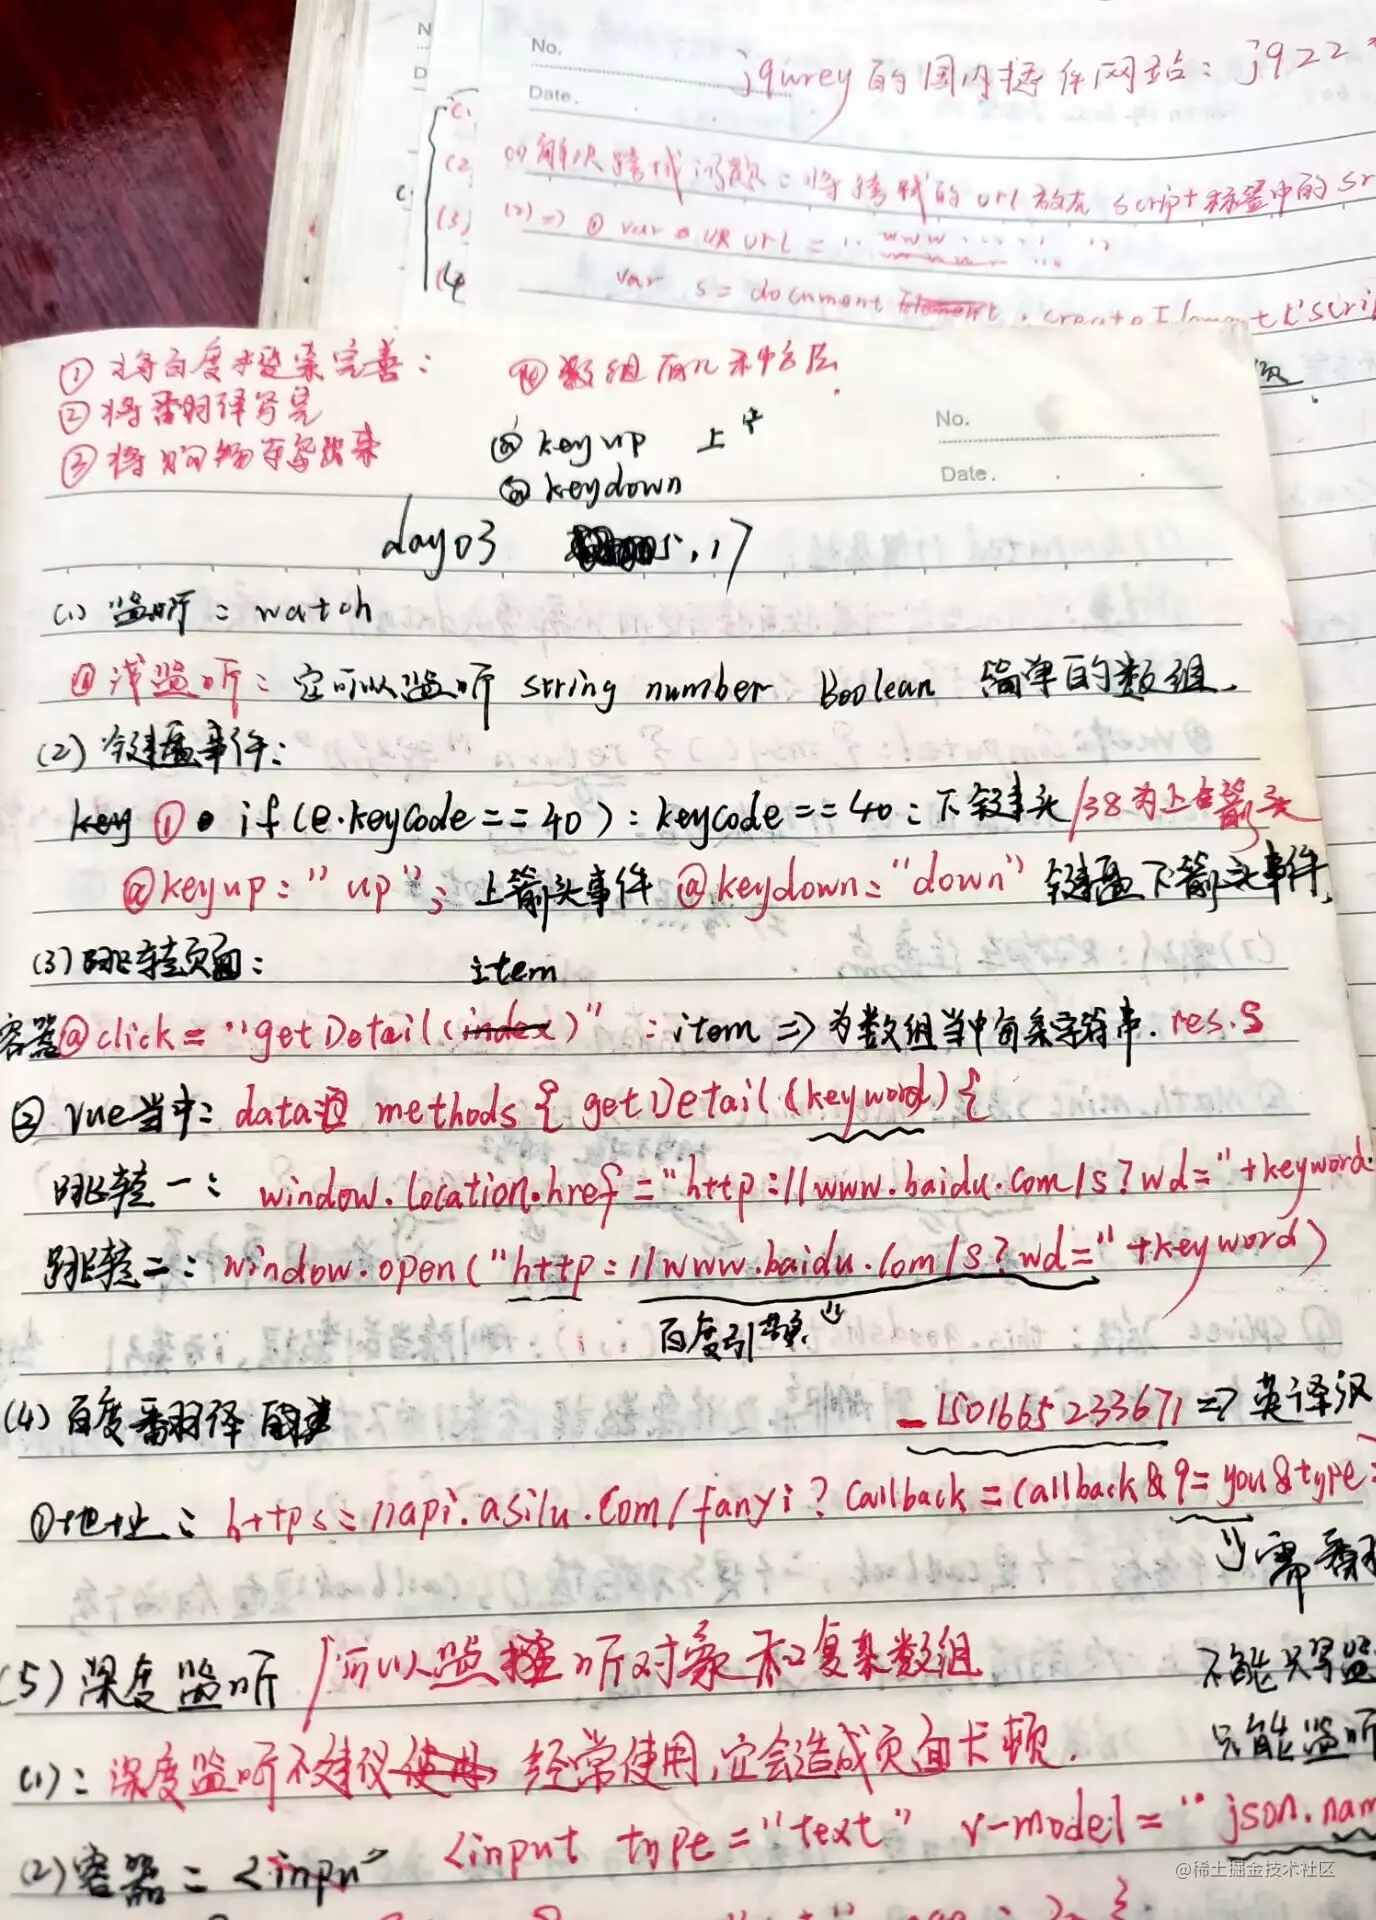 No.
Date.
jqurey的国内插件网站：jq22
(1) 解决跨域问题：将跨域的url放在script标签中的sr
(2) => ① var url = "www......"
var s = document.createElement('scri
(3)
① 将百度搜索完善：
② 将翻译写完
③ 将购物车写出来
④ 数组有几种方法
@ keyup 上个
@ keydown
No.
Date.
day03 5.17
(1) 监听：watch
① 浅监听：它可以监听 string number Boolean 简单的数组.
(2) 键盘事件：
key ① if (e.keyCode == 40) : keycode == 40：下箭头/38为上箭头
@keyup="up"; 上箭头事件 @keydown="down" 键盘下箭头事件.
(3) 跳转页面：
item
容器@click="getDetail(index)" : item => 为数组当中每条字符串. res.s
② vue当中： data methods { getDetail (keyword) {
跳转一：window.location.href = "http://www.baidu.com/s?wd="+keyword.
跳转二：window.open("http://www.baidu.com/s?wd="+keyword)
百度引擎.
(4) 百度翻译
_1501665233671 => 英译汉
①地址：https://api.asilu.com/fanyi?callback=callback&q=you&type=
需翻
(5) 深度监听 可以监听对象和复杂数组
不能只写监
只能监听
(1)：深度监听不建议使用 经常使用,它会造成页面卡顿.
(2)容器：<inpu <input type="text" v-model="json.nam
@稀土掘金技术社区